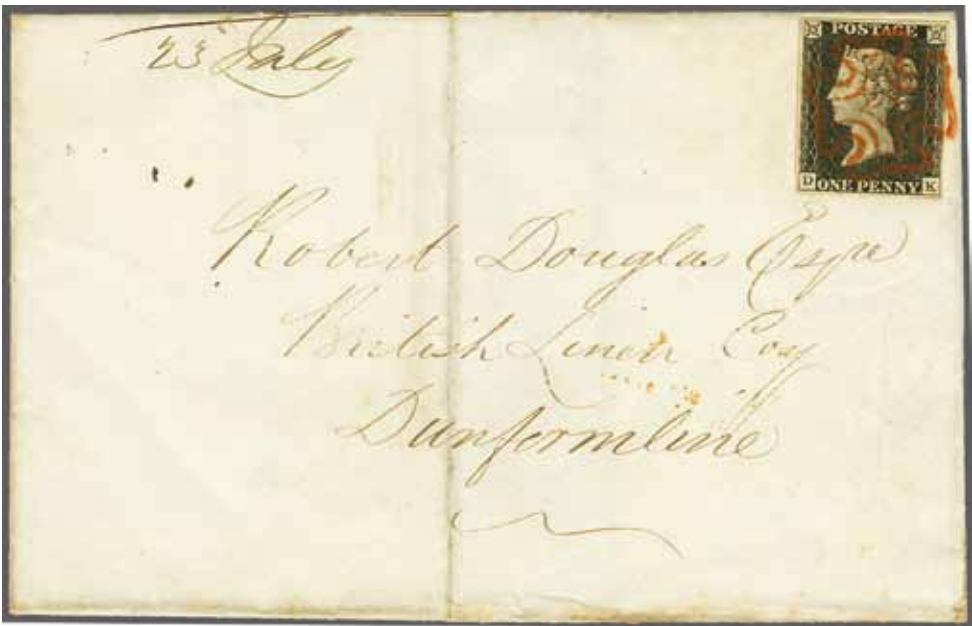 23 July
POSTAGE
D ONE PENNY K
Robert Douglas Esqre
British Linen Coy
Dunfermline